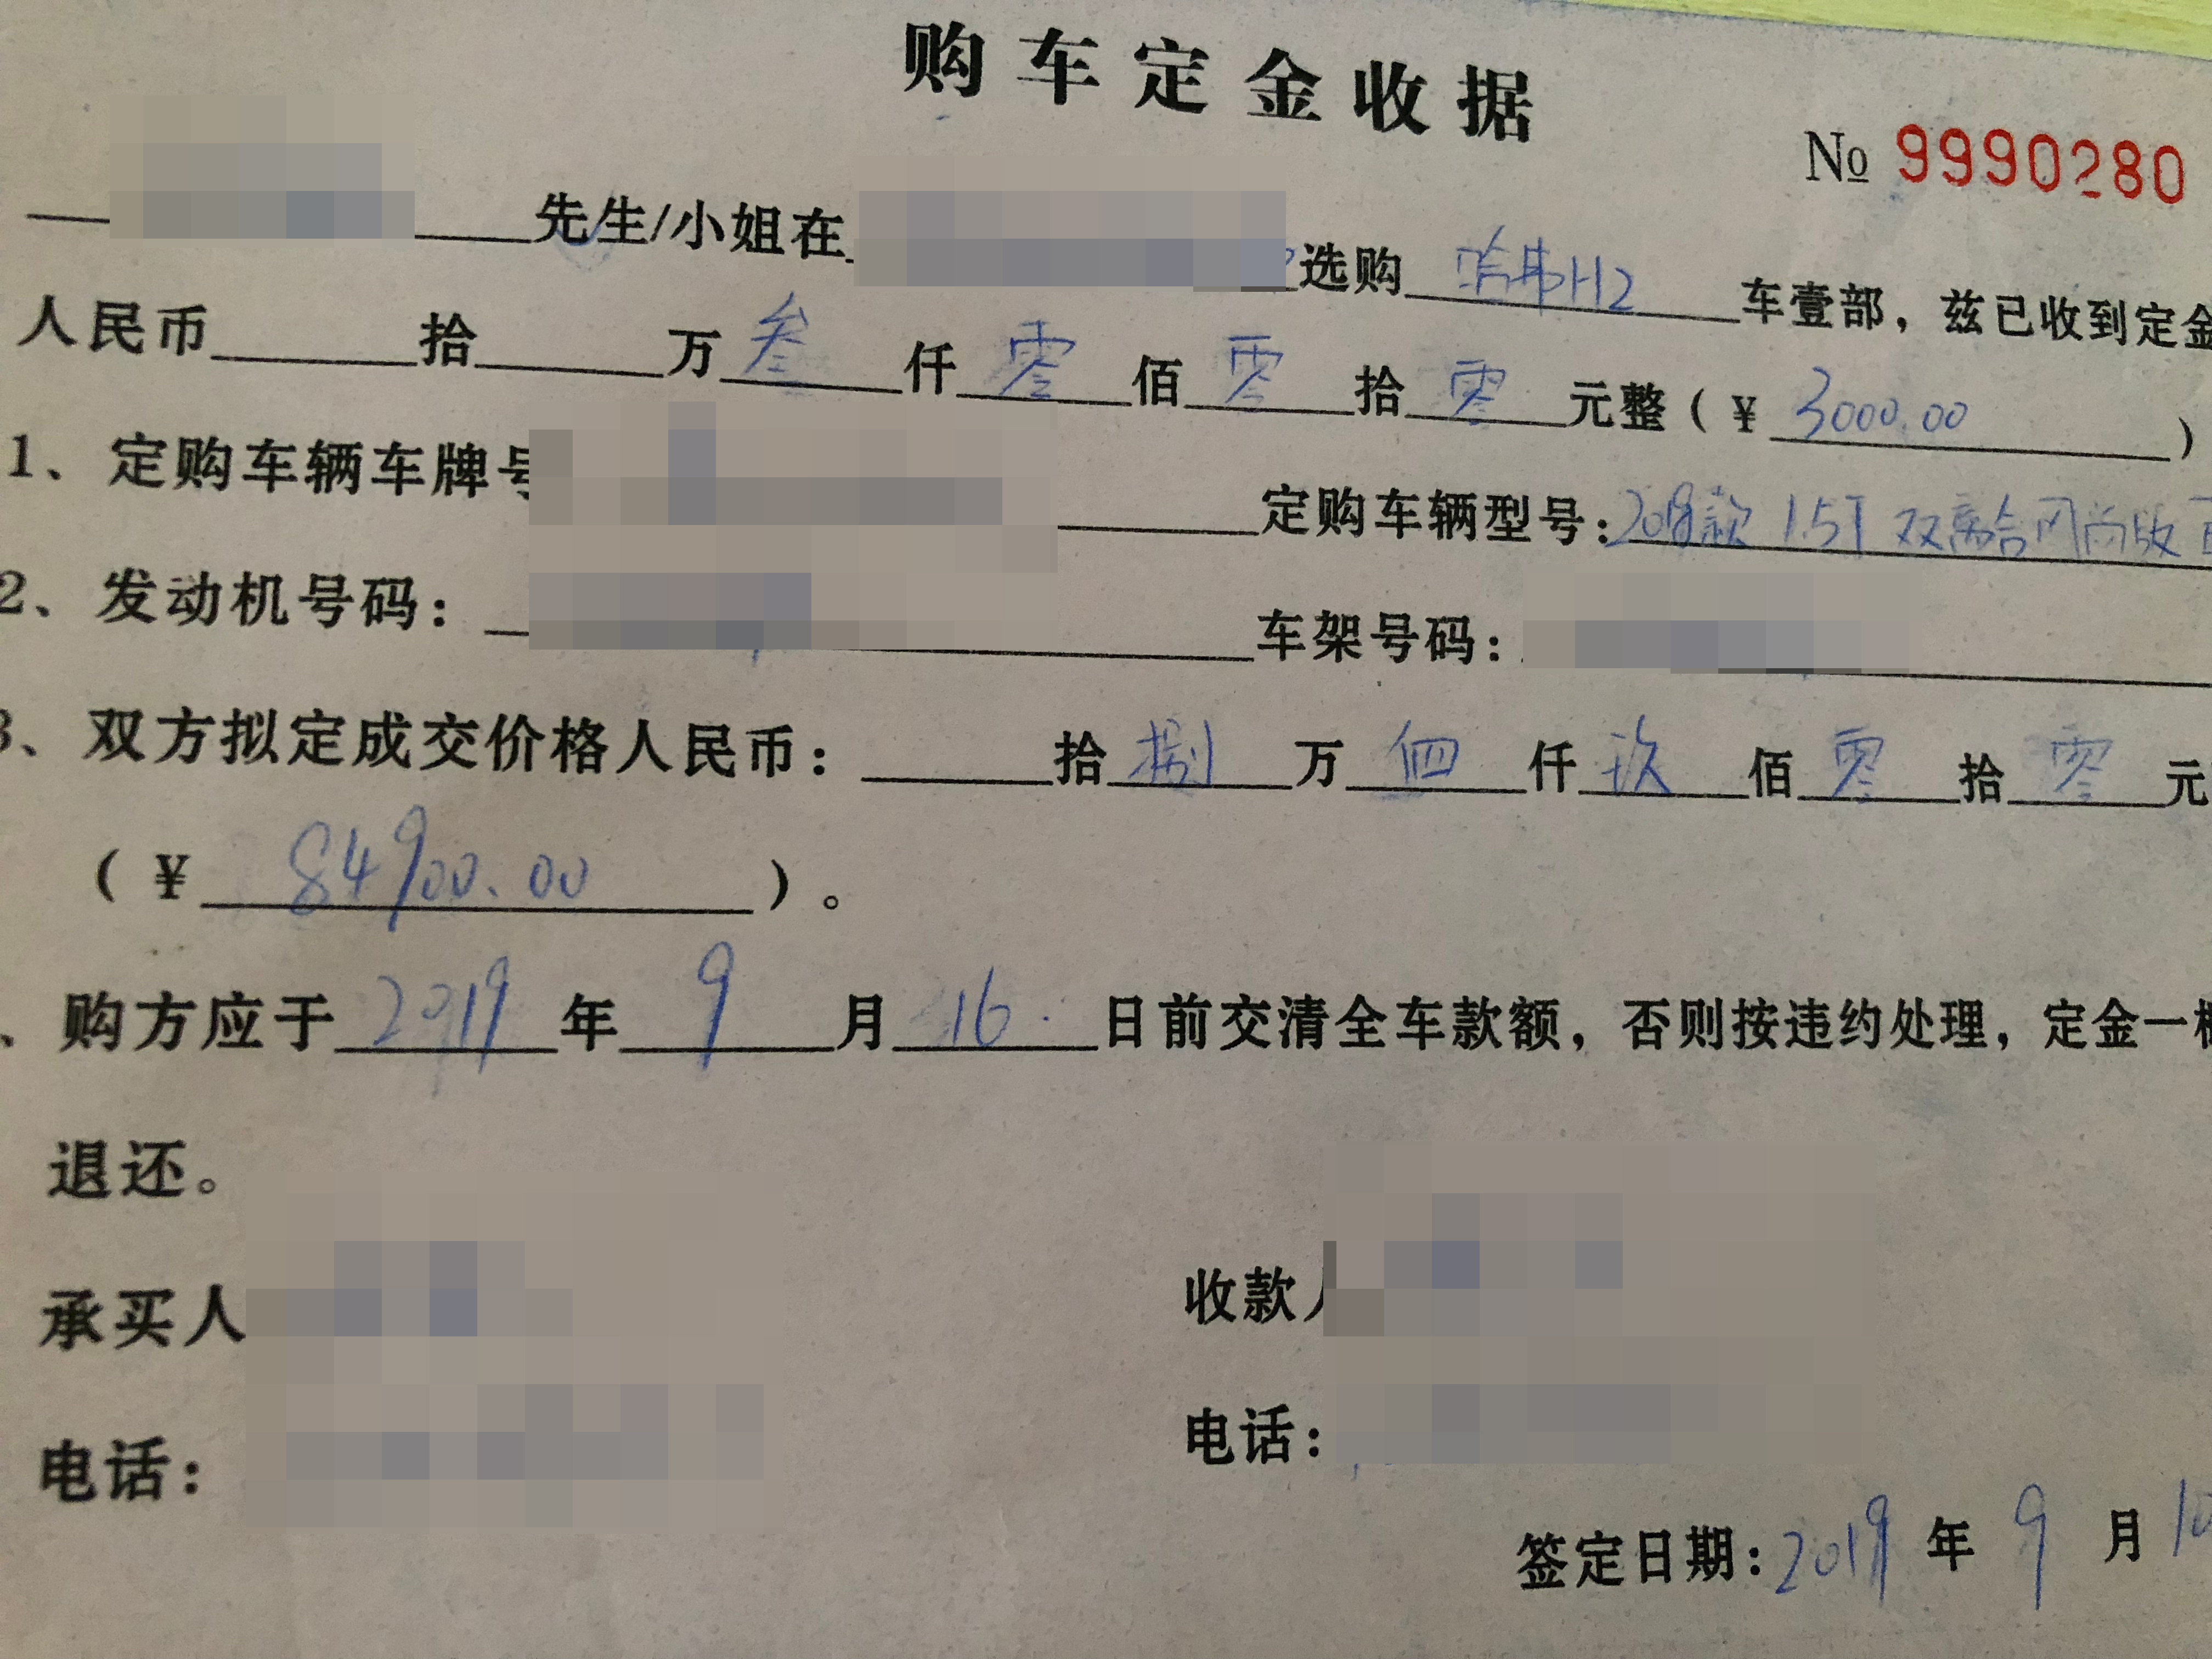 购车定金收据
№ 9990280
先生/小姐在 选购 哈弗H2 车壹部，兹已收到定金
人民币 拾 万 叁 仟 零 佰 零 拾 零 元整（￥ 3000.00 ）
1、定购车辆车牌号 定购车辆型号：2018款 1.5T 双离合风尚版
2、发动机号码： 车架号码：
3、双方拟定成交价格人民币： 拾 捌 万 四 仟 玖 佰 零 拾 零 元
（￥ 84900.00 ）。
、购方应于 2019 年 9 月 16 日前交清全车款额，否则按违约处理，定金一概
退还。
承买人 收款人
电话： 电话：
签定日期：2019 年 9 月 10